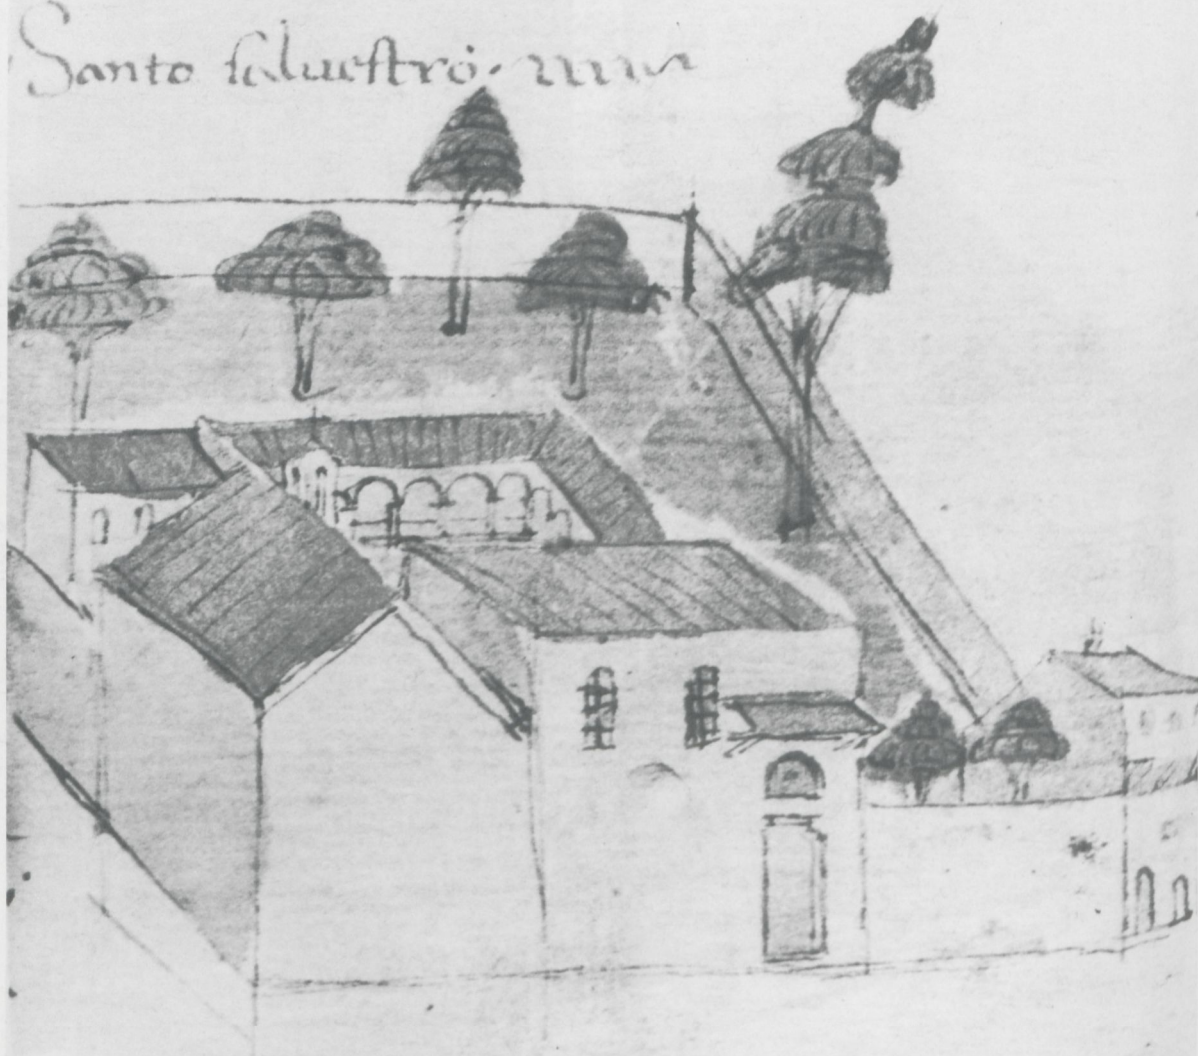 Santo saluestro.